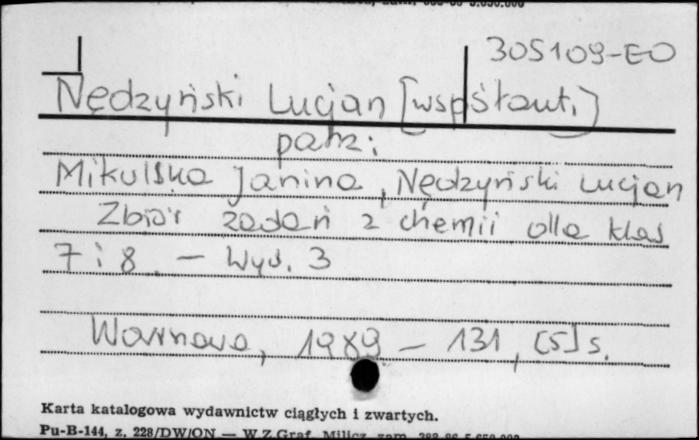 305109-EO
Nędzyński Lucjan [współaut.]
patrz:
Mikulska Janina, Nędzyński Lucjan
Zbiór zadań z chemii dla klas
7 i 8. - Wyd. 3
Warszawa, 1989. - 131, [5] s.
Karta katalogowa wydawnictw ciągłych i zwartych.
Pu-B-144, z. 228/DW/ON — W.Z.Graf. Milicz, zam.